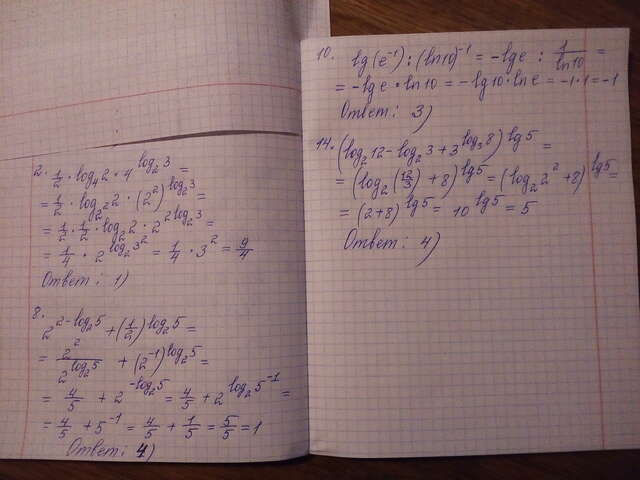 2. 1/2 · log₄2 · 4^(log₂3) =
= 1/2 · log_(2²)2 · (2²)^(log₂3) =
= 1/2 · 1/2 · log₂2 · 2^(2log₂3) =
= 1/4 · 2^(log₂3²) = 1/4 · 3² = 9/4
Ответ: 1)
8.
2^(2-log₂5) + (1/2)^(log₂5) =
= 2²/2^(log₂5) + (2⁻¹)^(log₂5) =
= 4/5 + 2^(-log₂5) = 4/5 + 2^(log₂5⁻¹) =
= 4/5 + 5⁻¹ = 4/5 + 1/5 = 5/5 = 1
Ответ: 4)
10. lg(e⁻¹) : (ln10)⁻¹ = -lg e : 1/ln10 =
= -lg e · ln10 = -lg10 · ln e = -1·1 = -1
Ответ: 3)
14. (log₂12 - log₂3 + 3^(log₃8))^(lg5) =
= (log₂(12/3) + 8)^(lg5) = (log₂2² + 8)^(lg5) =
= (2+8)^(lg5) = 10^(lg5) = 5
Ответ: 4)